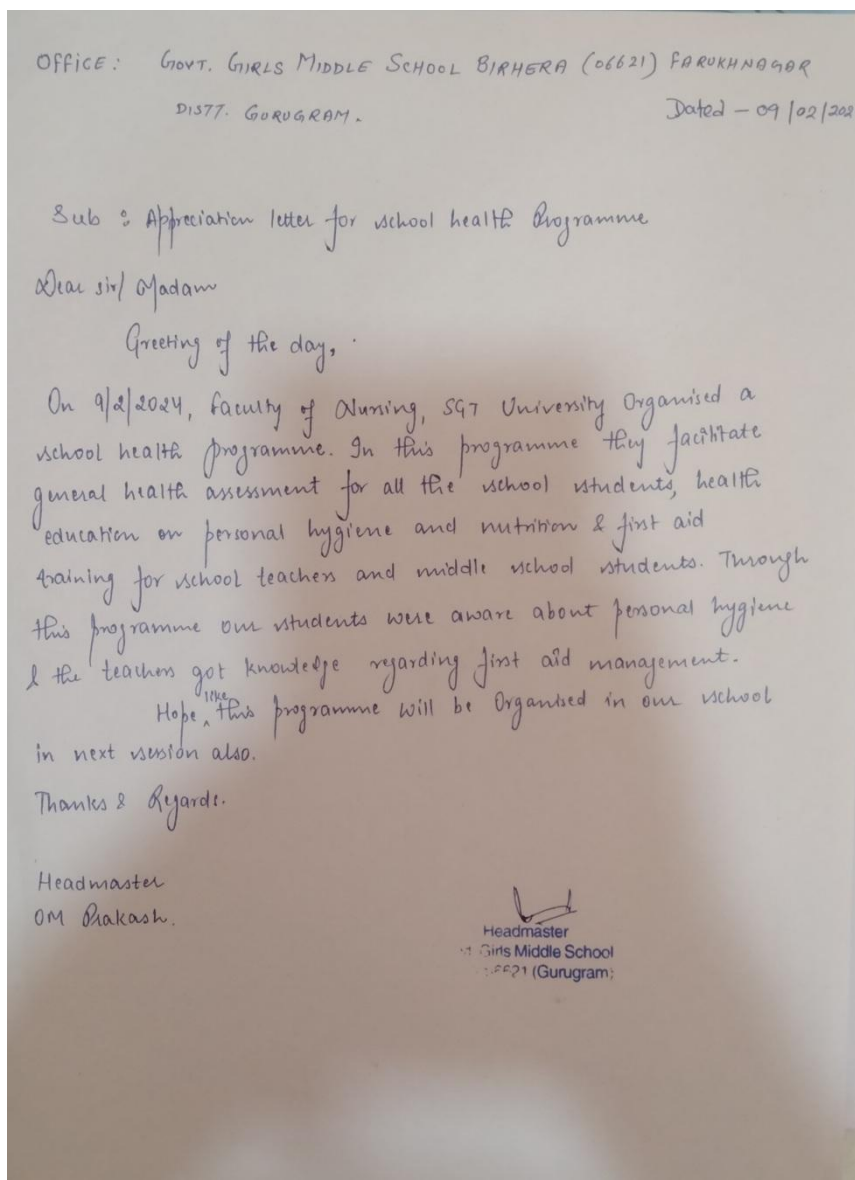 OFFICE : GOVT. GIRLS MIDDLE SCHOOL BIRHERA (06621) FARUKHNAGAR
DISTT. GURUGRAM.
Dated - 09/02/202
Sub : Appreciation letter for school health Programme
Dear sir/ Madam
Greeting of the day,
On 9/2/2024, faculty of Nursing, SGT University Organised a
school health programme. In this programme they facilitate
general health assessment for all the school students, health
education on personal hygiene and nutrition & first aid
training for school teachers and middle school students. Through
this programme our students were aware about personal hygiene
& the teachers got knowledge regarding first aid management.
Hope like this programme will be Organised in our school
in next session also.
Thanks & Regards.
Headmaster
OM Prakash.
Headmaster
Girls Middle School
6621 (Gurugram)